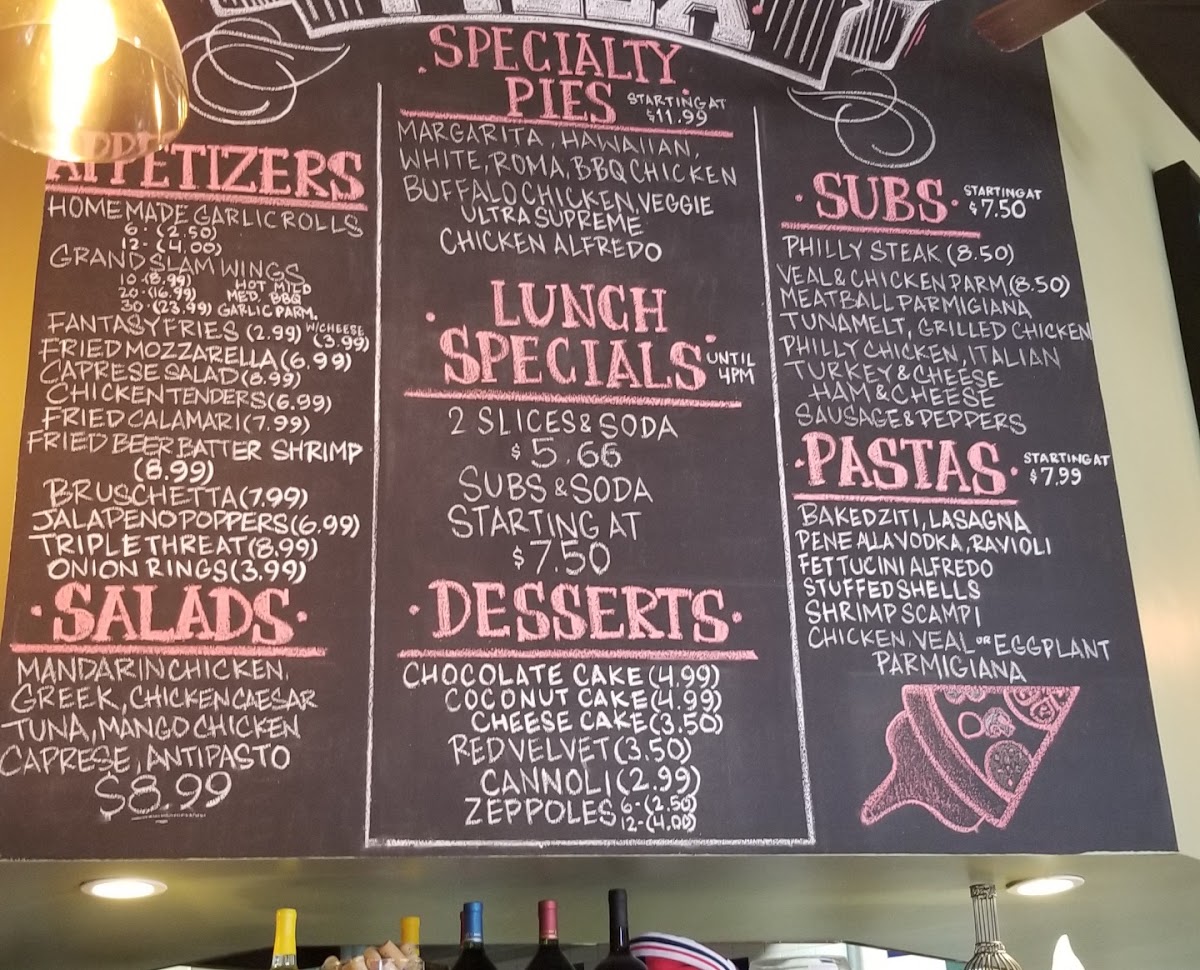 SPECIALTY
PIES STARTING AT
$11.99
MARGARITA, HAWAIIAN,
WHITE, ROMA, BBQ CHICKEN
BUFFALO CHICKEN, VEGGIE
ULTRA SUPREME
CHICKEN ALFREDO
APPETIZERS
HOMEMADE GARLIC ROLLS
6- (2.50)
12- (4.00)
GRAND SLAM WINGS
10-(8.99) HOT MILD
20-(16.99) MED. BBQ
30-(23.99) GARLIC PARM.
FANTASY FRIES (2.99) W/CHEESE
(3.99)
FRIED MOZZARELLA (6.99)
CAPRESE SALAD (8.99)
CHICKEN TENDERS (6.99)
FRIED CALAMARI (7.99)
FRIED BEER BATTER SHRIMP
(8.99)
BRUSCHETTA (7.99)
JALAPENO POPPERS (6.99)
TRIPLE THREAT (8.99)
ONION RINGS (3.99)
SALADS
MANDARIN CHICKEN,
GREEK, CHICKEN CAESAR
TUNA, MANGO CHICKEN
CAPRESE, ANTIPASTO
$8.99
LUNCH
SPECIALS UNTIL
4PM
2 SLICES & SODA
$5.66
SUBS & SODA
STARTING AT
$7.50
DESSERTS
CHOCOLATE CAKE (4.99)
COCONUT CAKE (4.99)
CHEESE CAKE (3.50)
RED VELVET (3.50)
CANNOLI (2.99)
ZEPPOLES 6-(2.50)
12-(4.00)
SUBS STARTING AT
$7.50
PHILLY STEAK (8.50)
VEAL & CHICKEN PARM (8.50)
MEATBALL PARMIGIANA
TUNA MELT, GRILLED CHICKEN
PHILLY CHICKEN, ITALIAN
TURKEY & CHEESE
HAM & CHEESE
SAUSAGE & PEPPERS
PASTAS STARTING AT
$7.99
BAKED ZITI, LASAGNA
PENE ALLA VODKA, RAVIOLI
FETTUCINI ALFREDO
STUFFED SHELLS
SHRIMP SCAMPI
CHICKEN, VEAL OR EGGPLANT
PARMIGIANA